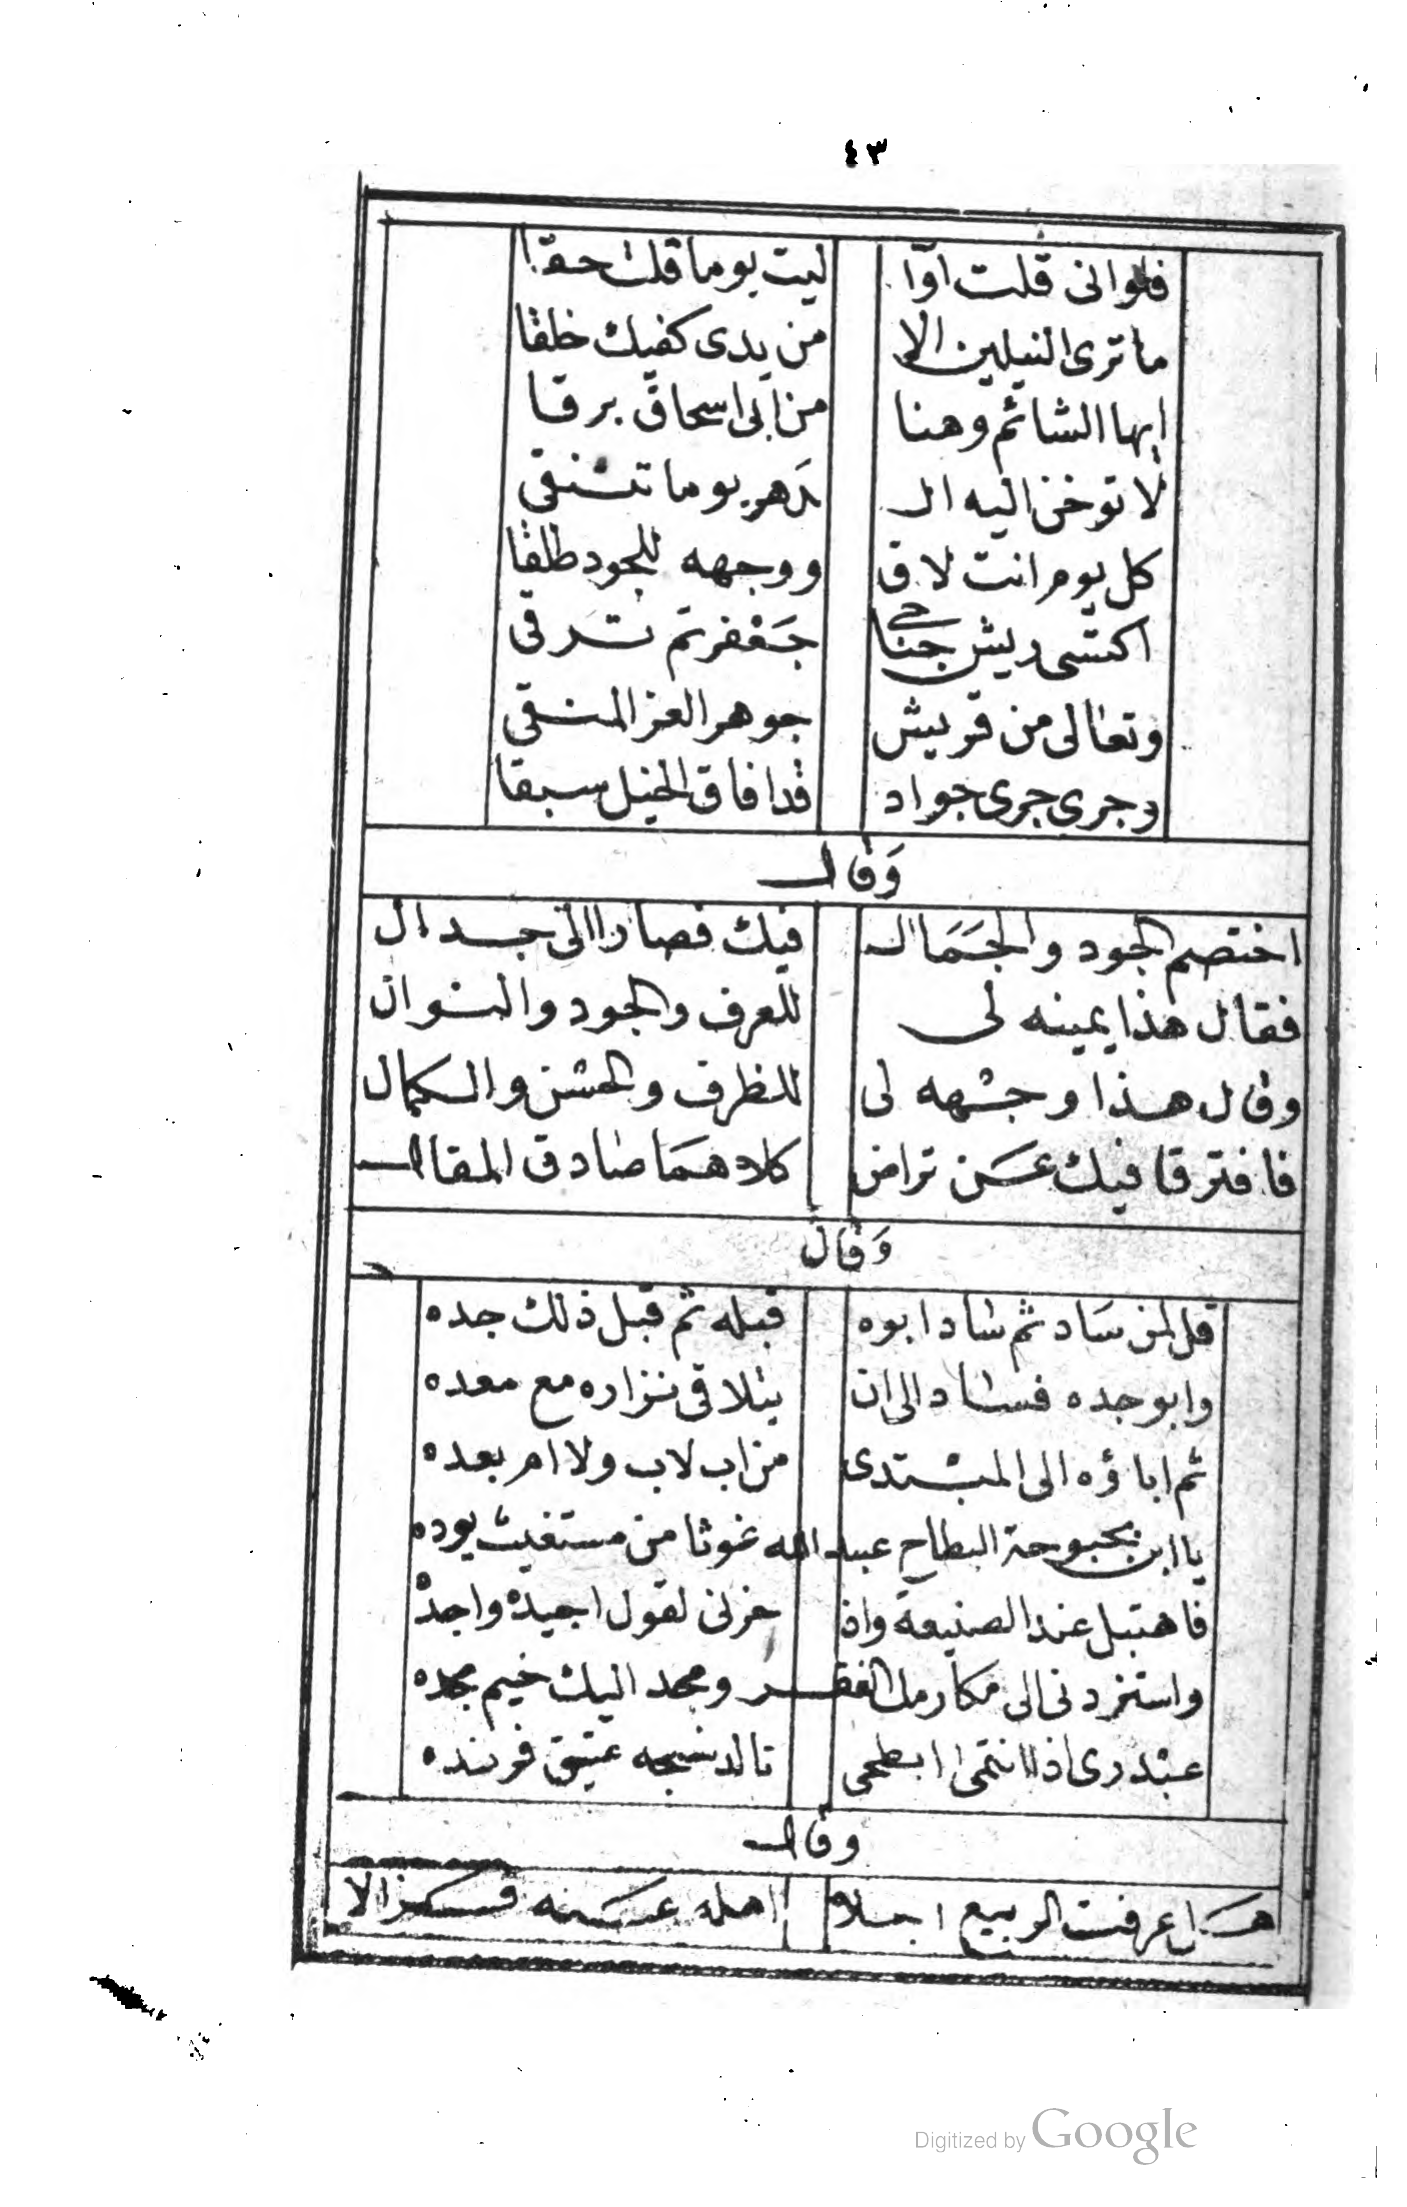 ٤٣
فلوانى قلت اوّا ليت يوما قلت حقّا
ما ترى النيلين الا من يدى كفيك خلقا
ايها الشائم وهنا من ابى اسحاق برقا
لا توخ اليه الـ ـدهر يوما تشقى
كل يوم انت لاق ووجهه للجود طلقا
اكتسى ريش جناحى جَعْفر ثم ترقى
وتعالى من قريش جوهر العز المنقى
وجرى جرى جواد قدافاق الخيل سبقا
وَقال
اختصم الجود والجَمَال فيك فصارا الى جدال
فقال هذا يمينه لى للعرف والجود والنوال
وقال هذا وجهه لى للظرف والحسن والكمال
فافترقا فيك عن تراض كلاهما صادق المقال
وَقال
قل لمن سَاد ثم ساد ابوه قبله ثم قبل ذلك جده
وابو جده فساد الى ان يتلاقى نزاره مع معده
ثم اباؤه الى المبتدى من اب لاب ولا ام بعده
يا ابن بحبوحة البطاح عبيد الله غوثا من مستغيث يوده
فاهتبل عند الصنيعة واذ خرنى لقول اجيده واجده
واستزدنى الى مكارمك الغر ومجد اليك خيم مجده
عبدرى اذا انتمى ابطحى تالد نسجه عتيق فرنده
وقال
هل عرفت الربيع اجلا اهله عنه فزالا
Digitized by Google